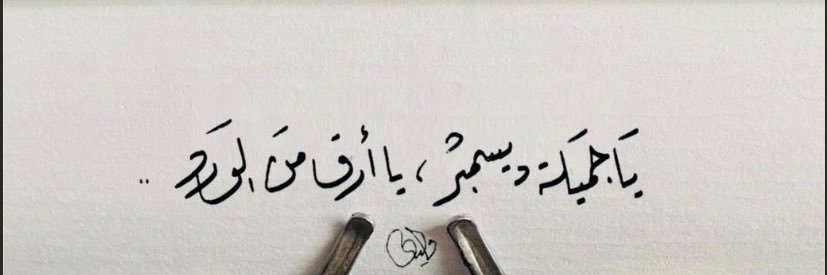 يَا جَميَلة ديسمبرْ ، يا أرق منَ الورَد ..